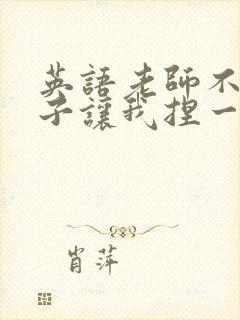 英語老師不
子讓我捏一
肖萍